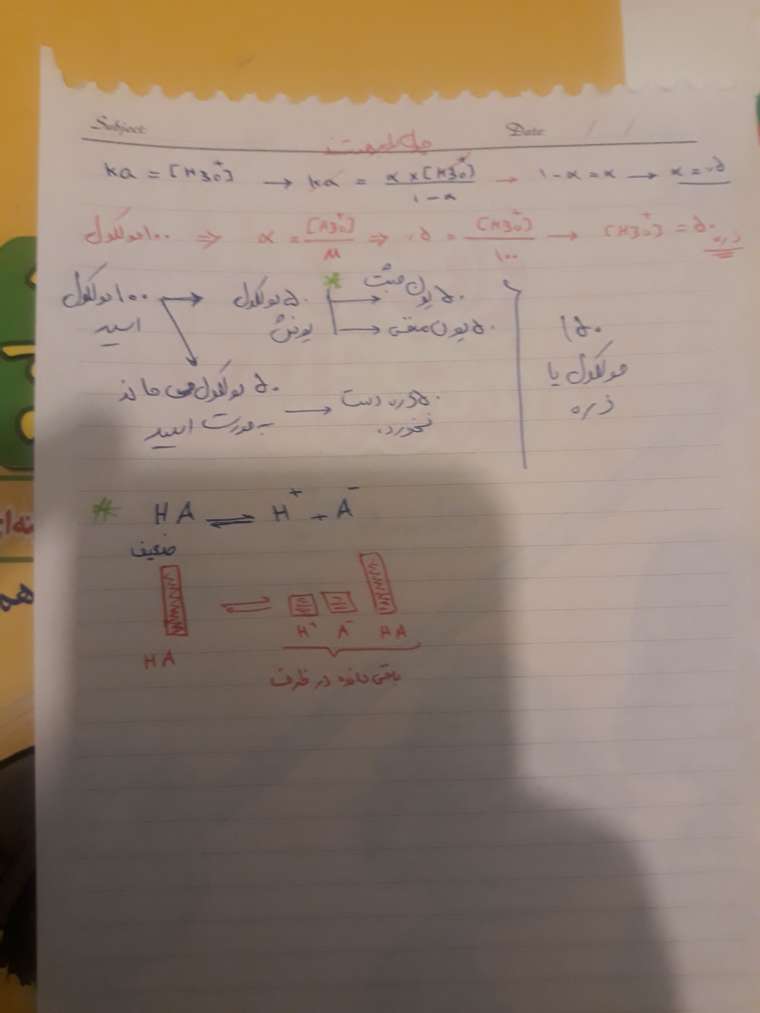 Subject: Date: / /
Ka = [H3O+] → Ka = α×[H3O+] / 1-α → 1-α = α → α = ۰٫۵
۱۰۰ مولکول ⇒ α = [H3O+] / M ⇒ ۰٫۵ = [H3O+] / ۱۰۰ → [H3O+] = ۵۰ ذره
۱۰۰ مولکول اسید → ۵۰ مولکول یونش * → ۵۰ یون مثبت
→ ۵۰ یون منفی
۱۵۰ مولکول یا ذره
۵۰ مولکول می ماند بصورت اسید → ۵۰ ذره دست نخورده
* HA ⇌ H+ + A-
ضعیف
HA ⇌ H+ A- HA
باقی مانده در ظرف